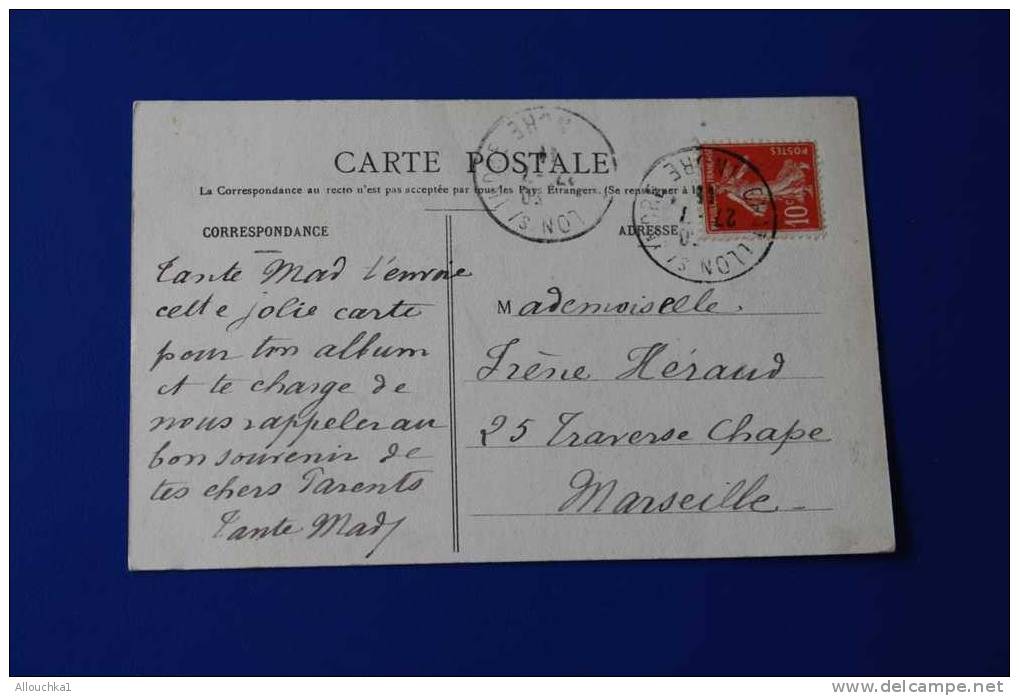 CARTE POSTALE
La Correspondance au recto n'est pas acceptée par tous les Pays Étrangers. (Se renseigner à l
CORRESPONDANCE
ADRESSE
Tante Mad t'envoie
cette jolie carte
pour ton album
et te charge de
nous rappeler au
bon souvenir de
tes chers Parents
Tante Mad
Mademoiselle.
Irène Héraud
25 Traverse Chape
Marseille
POSTES
10 c
LON S/
27
LLON S/
Allouchka1
www.delcampe.net